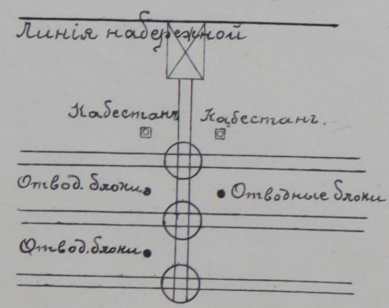 Линія набережной
Кабестанъ
Кабестанъ.
Отвод. блоки
Отводные блоки
Отвод. блоки